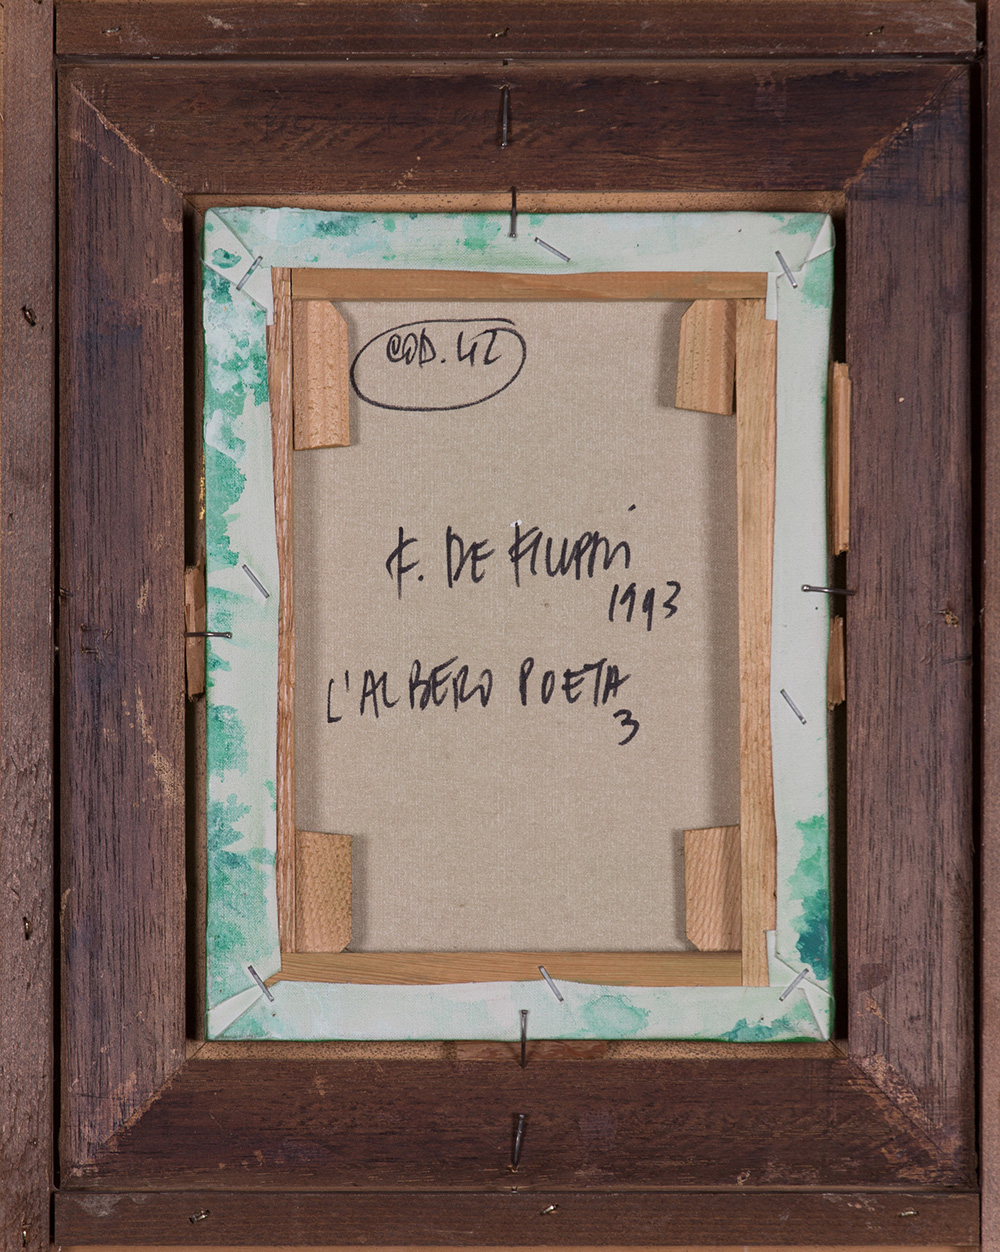 COD. 42
F. DE FILIPPI
1993
L'ALBERO POETA
3